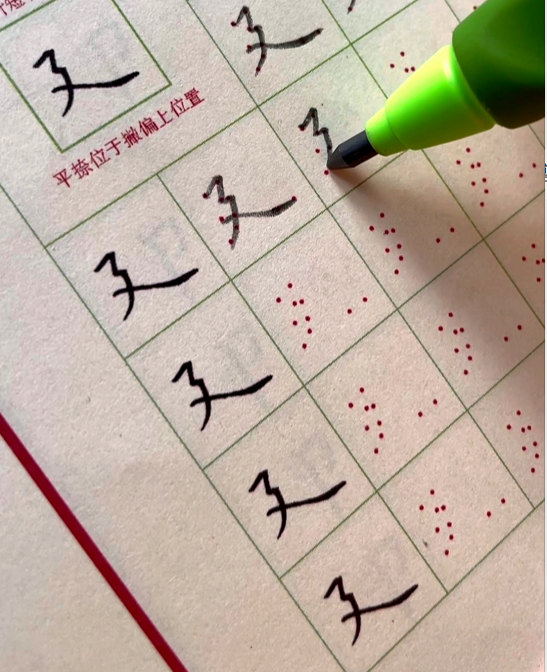 廴
廴
平捺位于撇偏上位置
廴 廴
廴
廴
廴